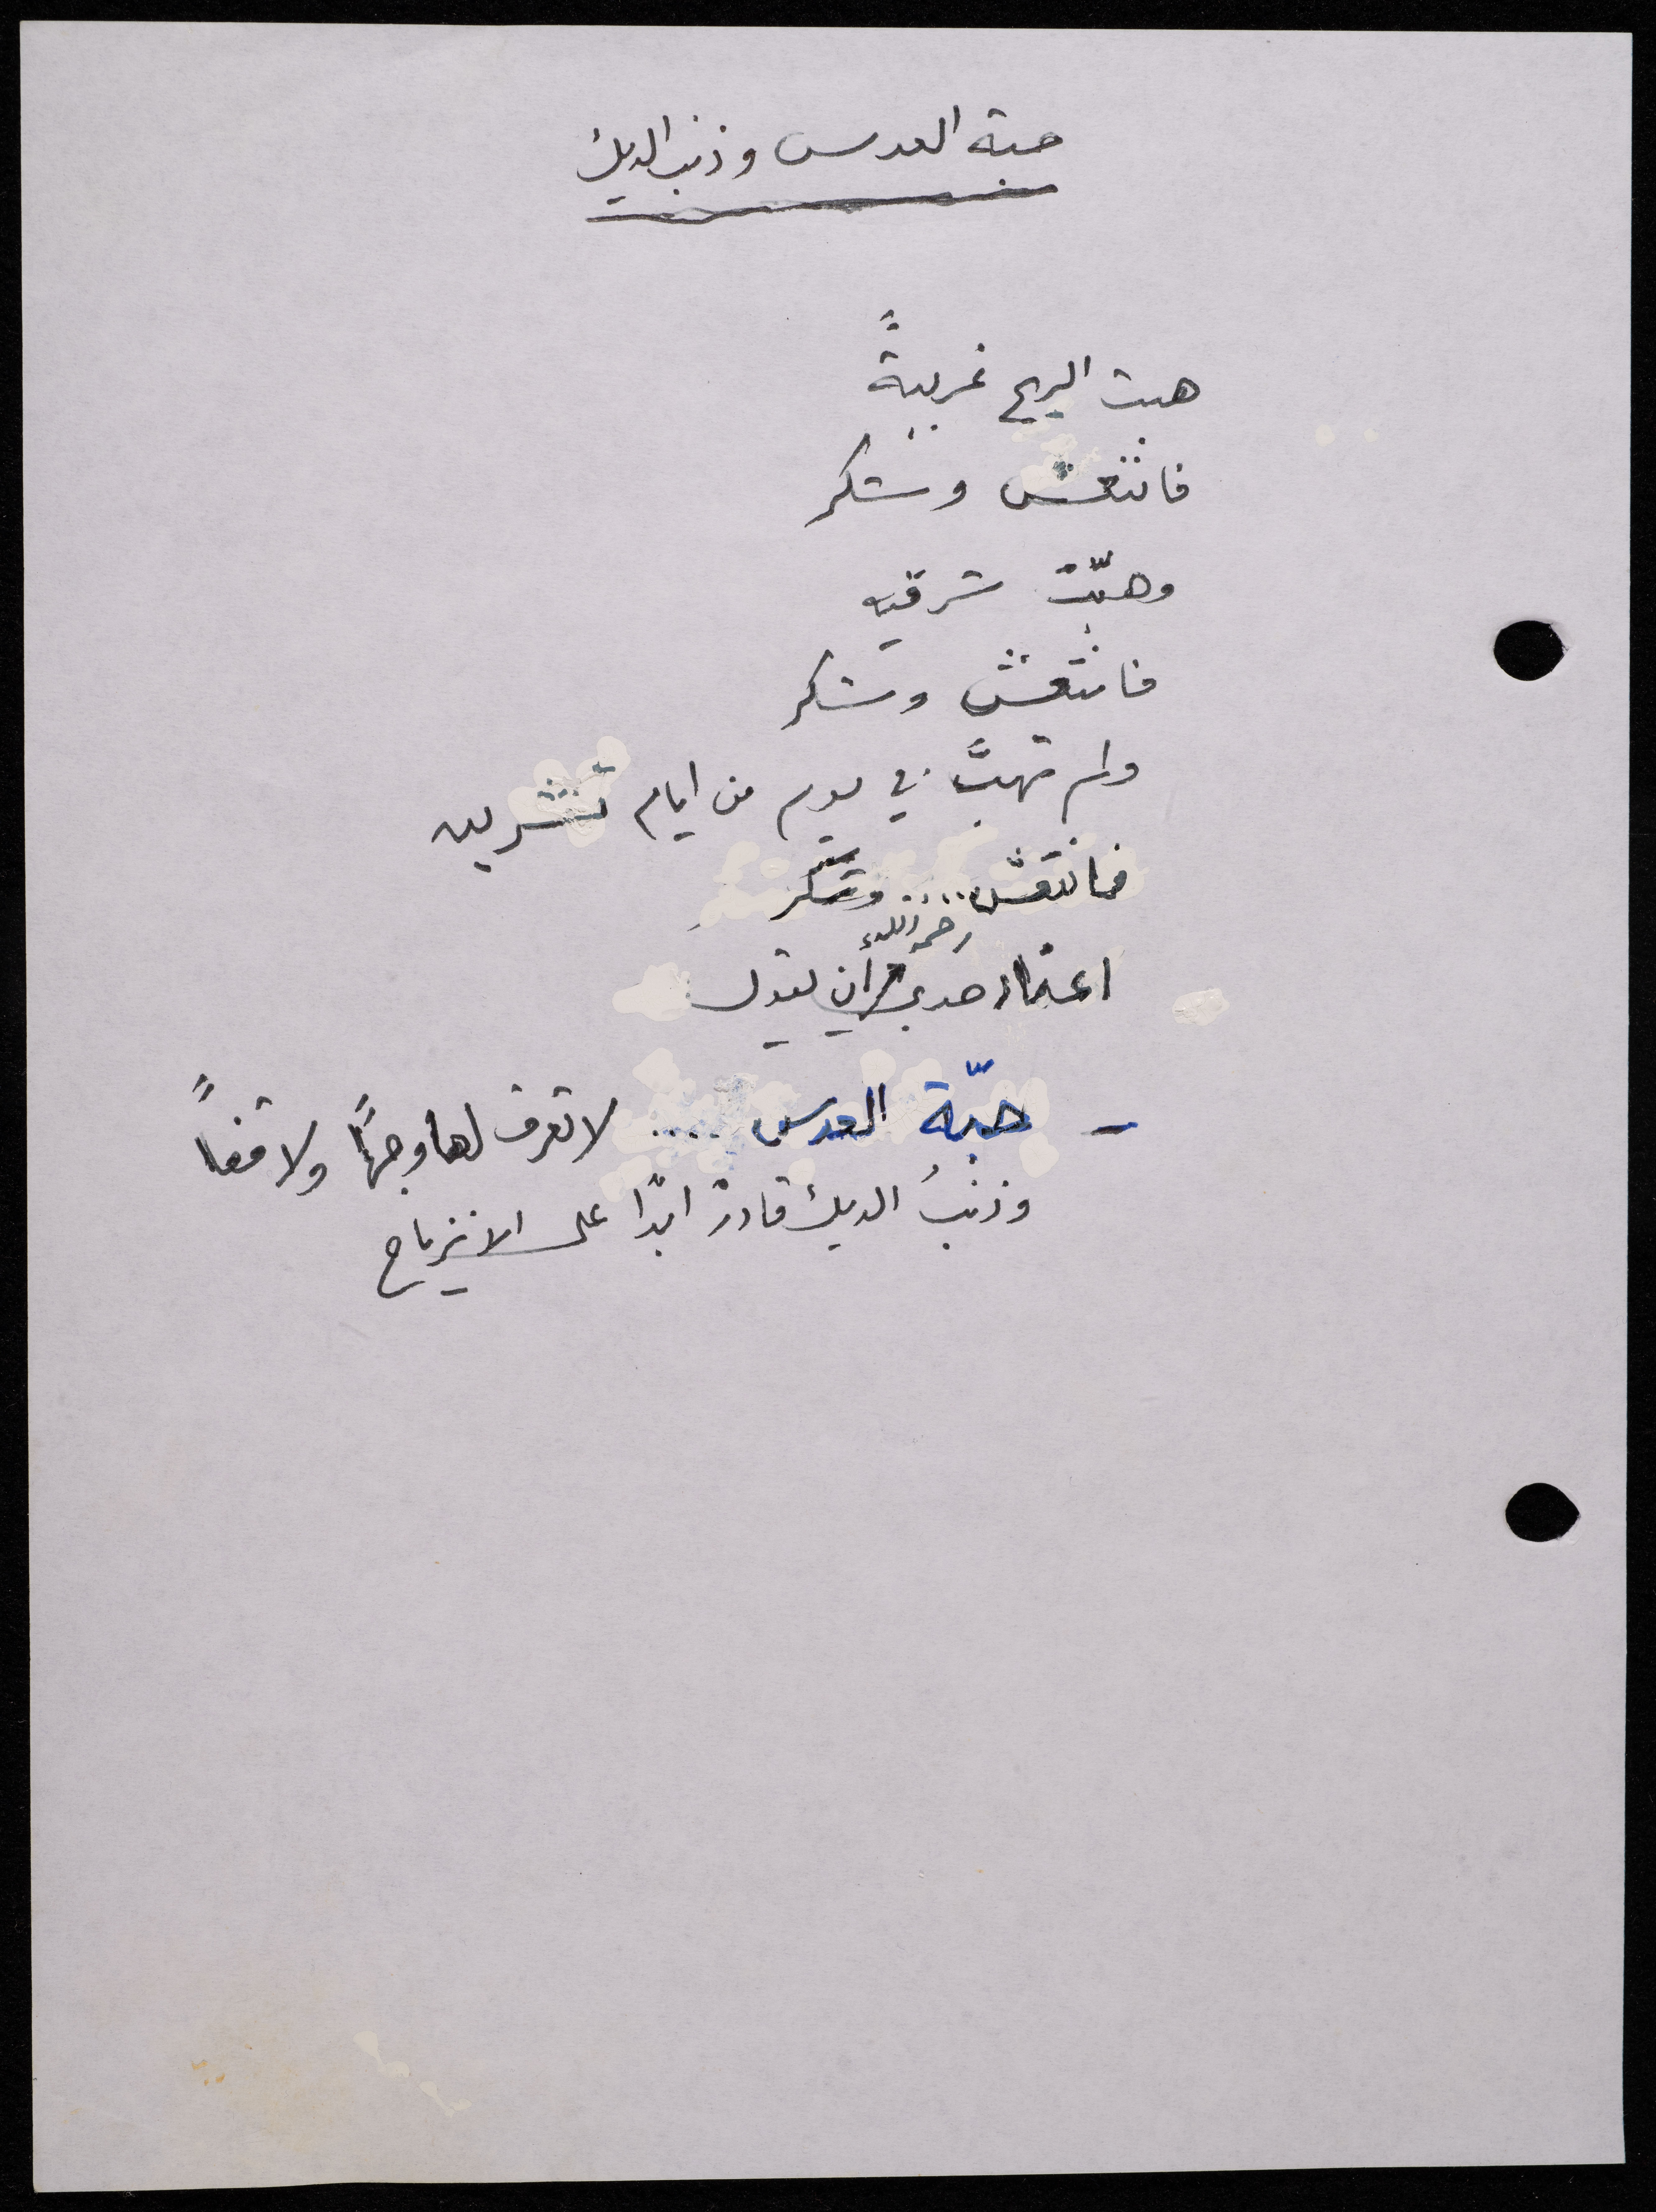 حبة العدس وذنب الديك
هبت الريح غربيةً
فانتعش وشكر
وهبّت شرقيه
فانتعش وشكر
ولم تهبَّ في يوم من ايام تشرين
فانتعش.... وشكر
رحمه الله
اعتاد جدي أن يقول
- حبّة العدس .... لا تعرف لها وجهًا ولا قفاً
وذنبُ الديك قادرٌ ابدًا على الانزياح